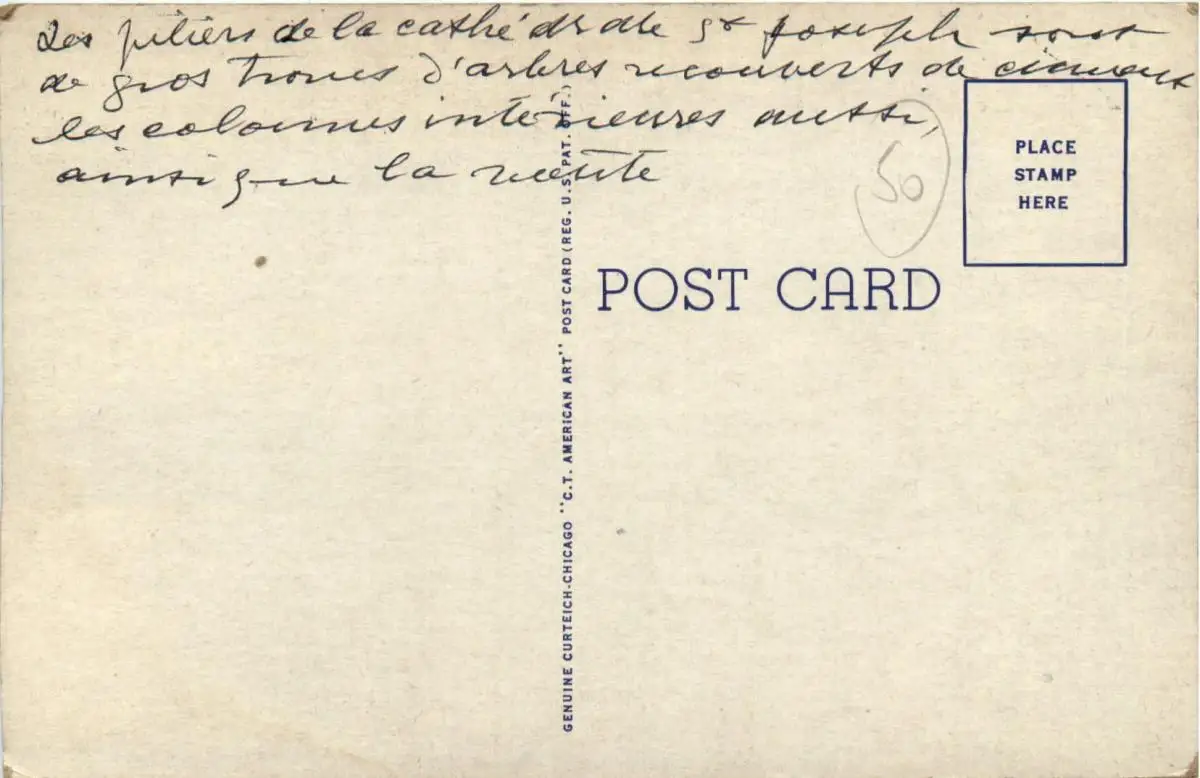 Les piliers de la cathédrale St Joseph sont
de gros troncs d'arbres recouverts de ciment
les colonnes intérieures aussi,
ainsi que la
50
PLACE
STAMP
HERE
POST CARD
GENUINE CURTEICH-CHICAGO "C.T. AMERICAN ART" POST CARD (REG. U.S. PAT. OFF.)